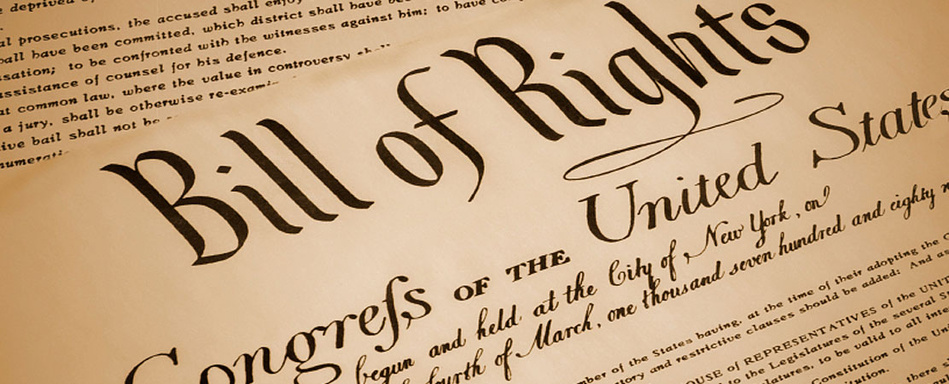 deprived
al prosecutions, the accused shall enjoy
hall have been committed, which district shall have
sation; to be confronted with the witnesses against him; to have
assistance of counsel for his defence.
at common law, where the value in controversy
a jury, shall be otherwise re-exami
ive bail shall not be
Bill of Rights
Congreſs OF THE United States
begun and held at the City of New York, on
fourth of March, one thousand seven hundred and eighty
mber of the States having, at the time of their adopting the
tory and restrictive clauses should be added: And as
OUSE of REPRESENTATIVES of the UNIT
to the Legislatures of the several
latures, to be valid to all
Constitution of the
there